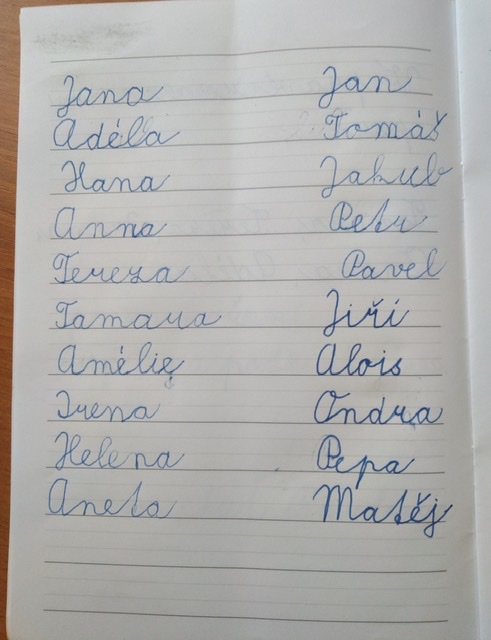 Jana Jan
Adéla Tomáš
Hana Jakub
Anna Petr
Tereza Pavel
Tamara Jiří
Amélie Alois
Irena Ondra
Helena Pepa
Aneta Matěj